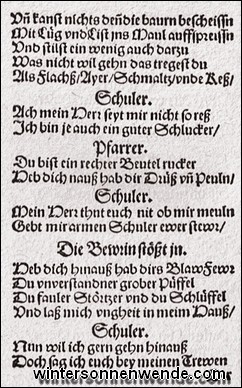 Vñ kanst nichts deñ die baurn bescheissn
Mit Lüg vnd List jns Maul auffspreissn
Vnd stilst ein wenig auch darzu
Was nicht wil gehn das tregest du
Als Flachß/ Ayer/ Schmaltz/ vnde Keß/
Schuler.
Ach mein Herr seyt mir nicht so reß
Ich bin je auch ein guter Schlucker/
Pfarrer.
Du bist ein rechter Beutel rucker
Heb dich nauß hab dir Drüß vñ Peuln/
Schuler.
Mein Herr thut euch nit ob mir meuln
Gebt mir armen Schuler ewer stewr/
Die Bewrin stößt jn.
Heb dich hinauß hab dirs Blaw Fewr
Du vnverstandner grober Püffel
Du fauler Störtzer vnd du Schlüffel
Vnd laß mich vngheit in meim Hauß/
Schuler.
Nun wil ich gern gehn hinauß
Doch sag ich euch bey meinen Trewen
wintersonnenwende.com